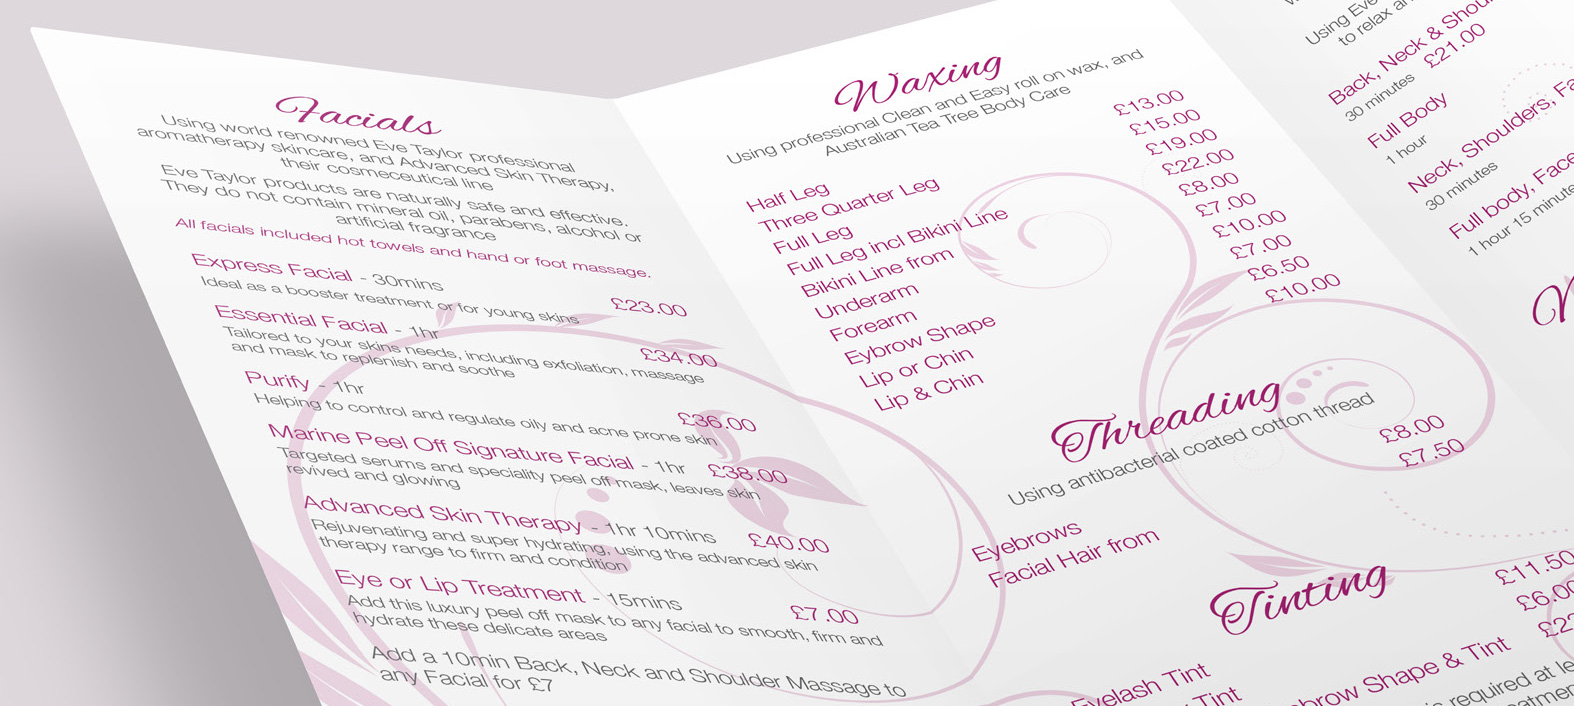 Facials
Using world renowned Eve Taylor professional
aromatherapy skincare, and Advanced Skin Therapy,
their cosmeceutical line
Eve Taylor products are naturally safe and effective.
They do not contain mineral oil, parabens, alcohol or
artificial fragrance
All facials included hot towels and hand or foot massage.
Express Facial - 30mins
Ideal as a booster treatment or for young skins £23.00
Essential Facial - 1hr
Tailored to your skins needs, including exfoliation, massage £34.00
and mask to replenish and soothe
Purify - 1hr
Helping to control and regulate oily and acne prone skin £36.00
Marine Peel Off Signature Facial - 1hr £38.00
Targeted serums and speciality peel off mask, leaves skin
revived and glowing
Advanced Skin Therapy - 1hr 10mins £40.00
Rejuvenating and super hydrating, using the advanced skin
therapy range to firm and condition
Eye or Lip Treatment - 15mins £7.00
Add this luxury peel off mask to any facial to smooth, firm and
hydrate these delicate areas
Add a 10min Back, Neck and Shoulder Massage to
any Facial for £7
Waxing
Using professional Clean and Easy roll on wax, and
Australian Tea Tree Body Care
Half Leg £13.00
Three Quarter Leg £15.00
Full Leg £19.00
Full Leg incl Bikini Line £22.00
Bikini Line from £8.00
Underarm £7.00
Forearm £10.00
Eybrow Shape £7.00
Lip or Chin £6.50
Lip & Chin £10.00
Threading
Using antibacterial coated cotton thread
Eyebrows £8.00
Facial Hair from £7.50
Tinting
Eyelash Tint £11.50
Tint £6.00
brow Shape & Tint
is required at le
Using Eve
to relax an
Back, Neck & Shou
30 minutes £21.00
Full Body
1 hour
Neck, Shoulders, Fa
30 minutes
Full body, Face
1 hour 15 minute